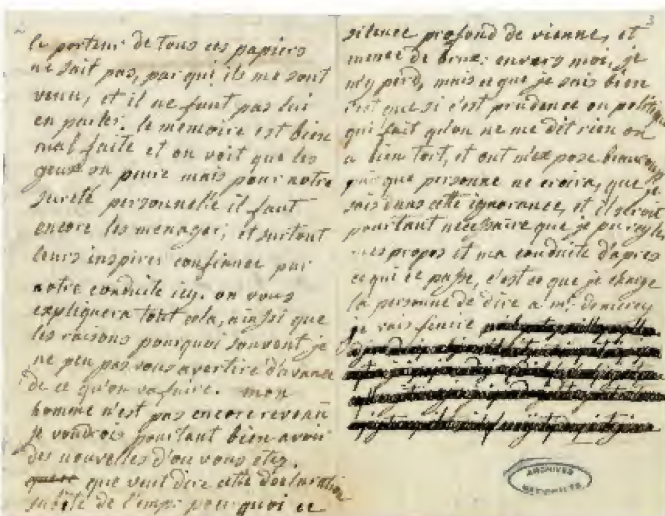 2
le porteur de tous ces papiers
ne sait pas, par qui ils me sont
venu, et il ne faut pas lui
en parler. le memoire est bien
mal faite et on voit que les
gens on peure mais pour notre
sureté personnelle il faut
encore les menager, et surtout
leurs inspirer confiance par
notre conduite icy. on vous
expliquera tout cela, ainsi que
les raisons pourquoi souvent je
ne peu pas vous avertire d'avance
de ce qu'on va faire. mon
homme n'est pas encore revenu
je voudrois pourtant bien avoir
des nouvelles d'ou vous etez.
que veut dire cette declaration
subite de l'emp: pourquoi ce
3
silence profond de vienne, et
meme de brux: envers moi, je
m'y perd, mais ce que je sais bien
c'est que si c'est prudence ou politique
qui fait qu'on ne me dit rien on
a bien tort, et ont m'expose beaucoup
que personne ne croira, que je
sois dans cette ignorance, et il seroit
pourtant necessaire que je puregle
mes propos et ma conduite d'apres
ce qui ce passe, c'est ce que je charge
la personne de dire a mr. de mercy
je vais finire
ARCHIVES
NATIONALES